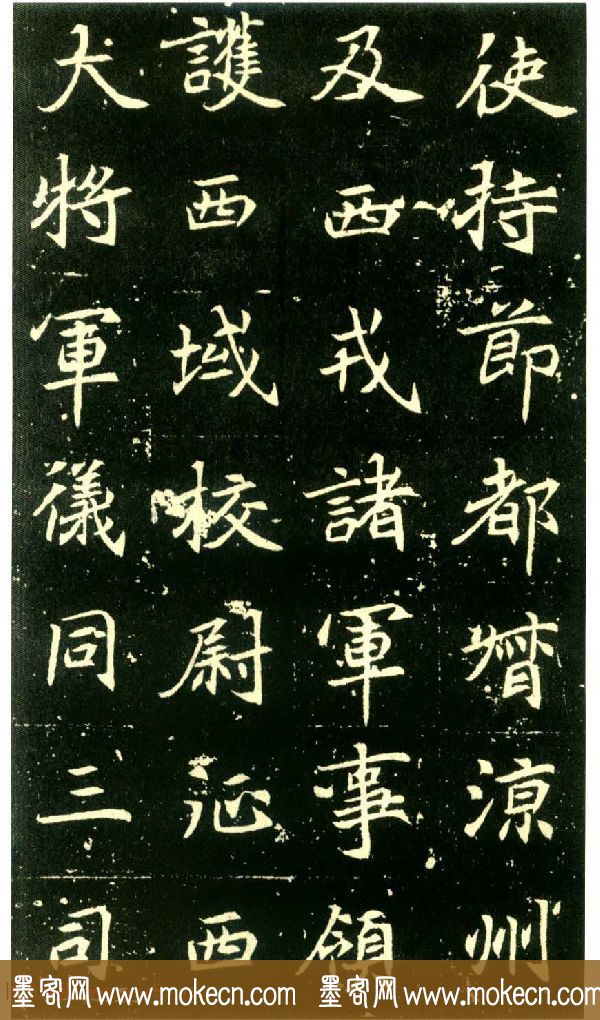 使持節都督涼州
及西戎諸軍事領
護西域校尉征西
大將軍儀同三司
墨客网 www.mokecn.com 墨客网 www.mokecn.com